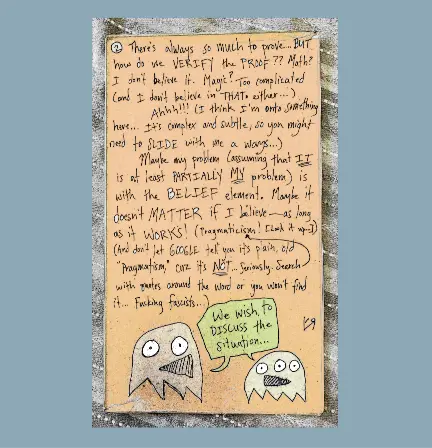 ② There's always so much to prove... BUT
how do we VERIFY the PROOF?? Math?
I don't believe it. Magic? Too complicated
(and I don't believe in THAT either...)
Ahhh!!! (I think I'm onto something
here... It's complex and subtle, so you might
need to SLIDE with me a ways...)
Maybe my problem (assuming that IT
is at least PARTIALLY MY problem) is
with the BELIEF element. Maybe it
doesn't MATTER if I believe—as long
as it WORKS! (Pragmaticism! Look it up
(And don't let GOOGLE tell you it's plain, old
"Pragmatism," cuz it's NOT... Seriously. Search
with quotes around the word or you won't find
it... Fucking fascists...)
We wish to
DISCUSS the
situation...